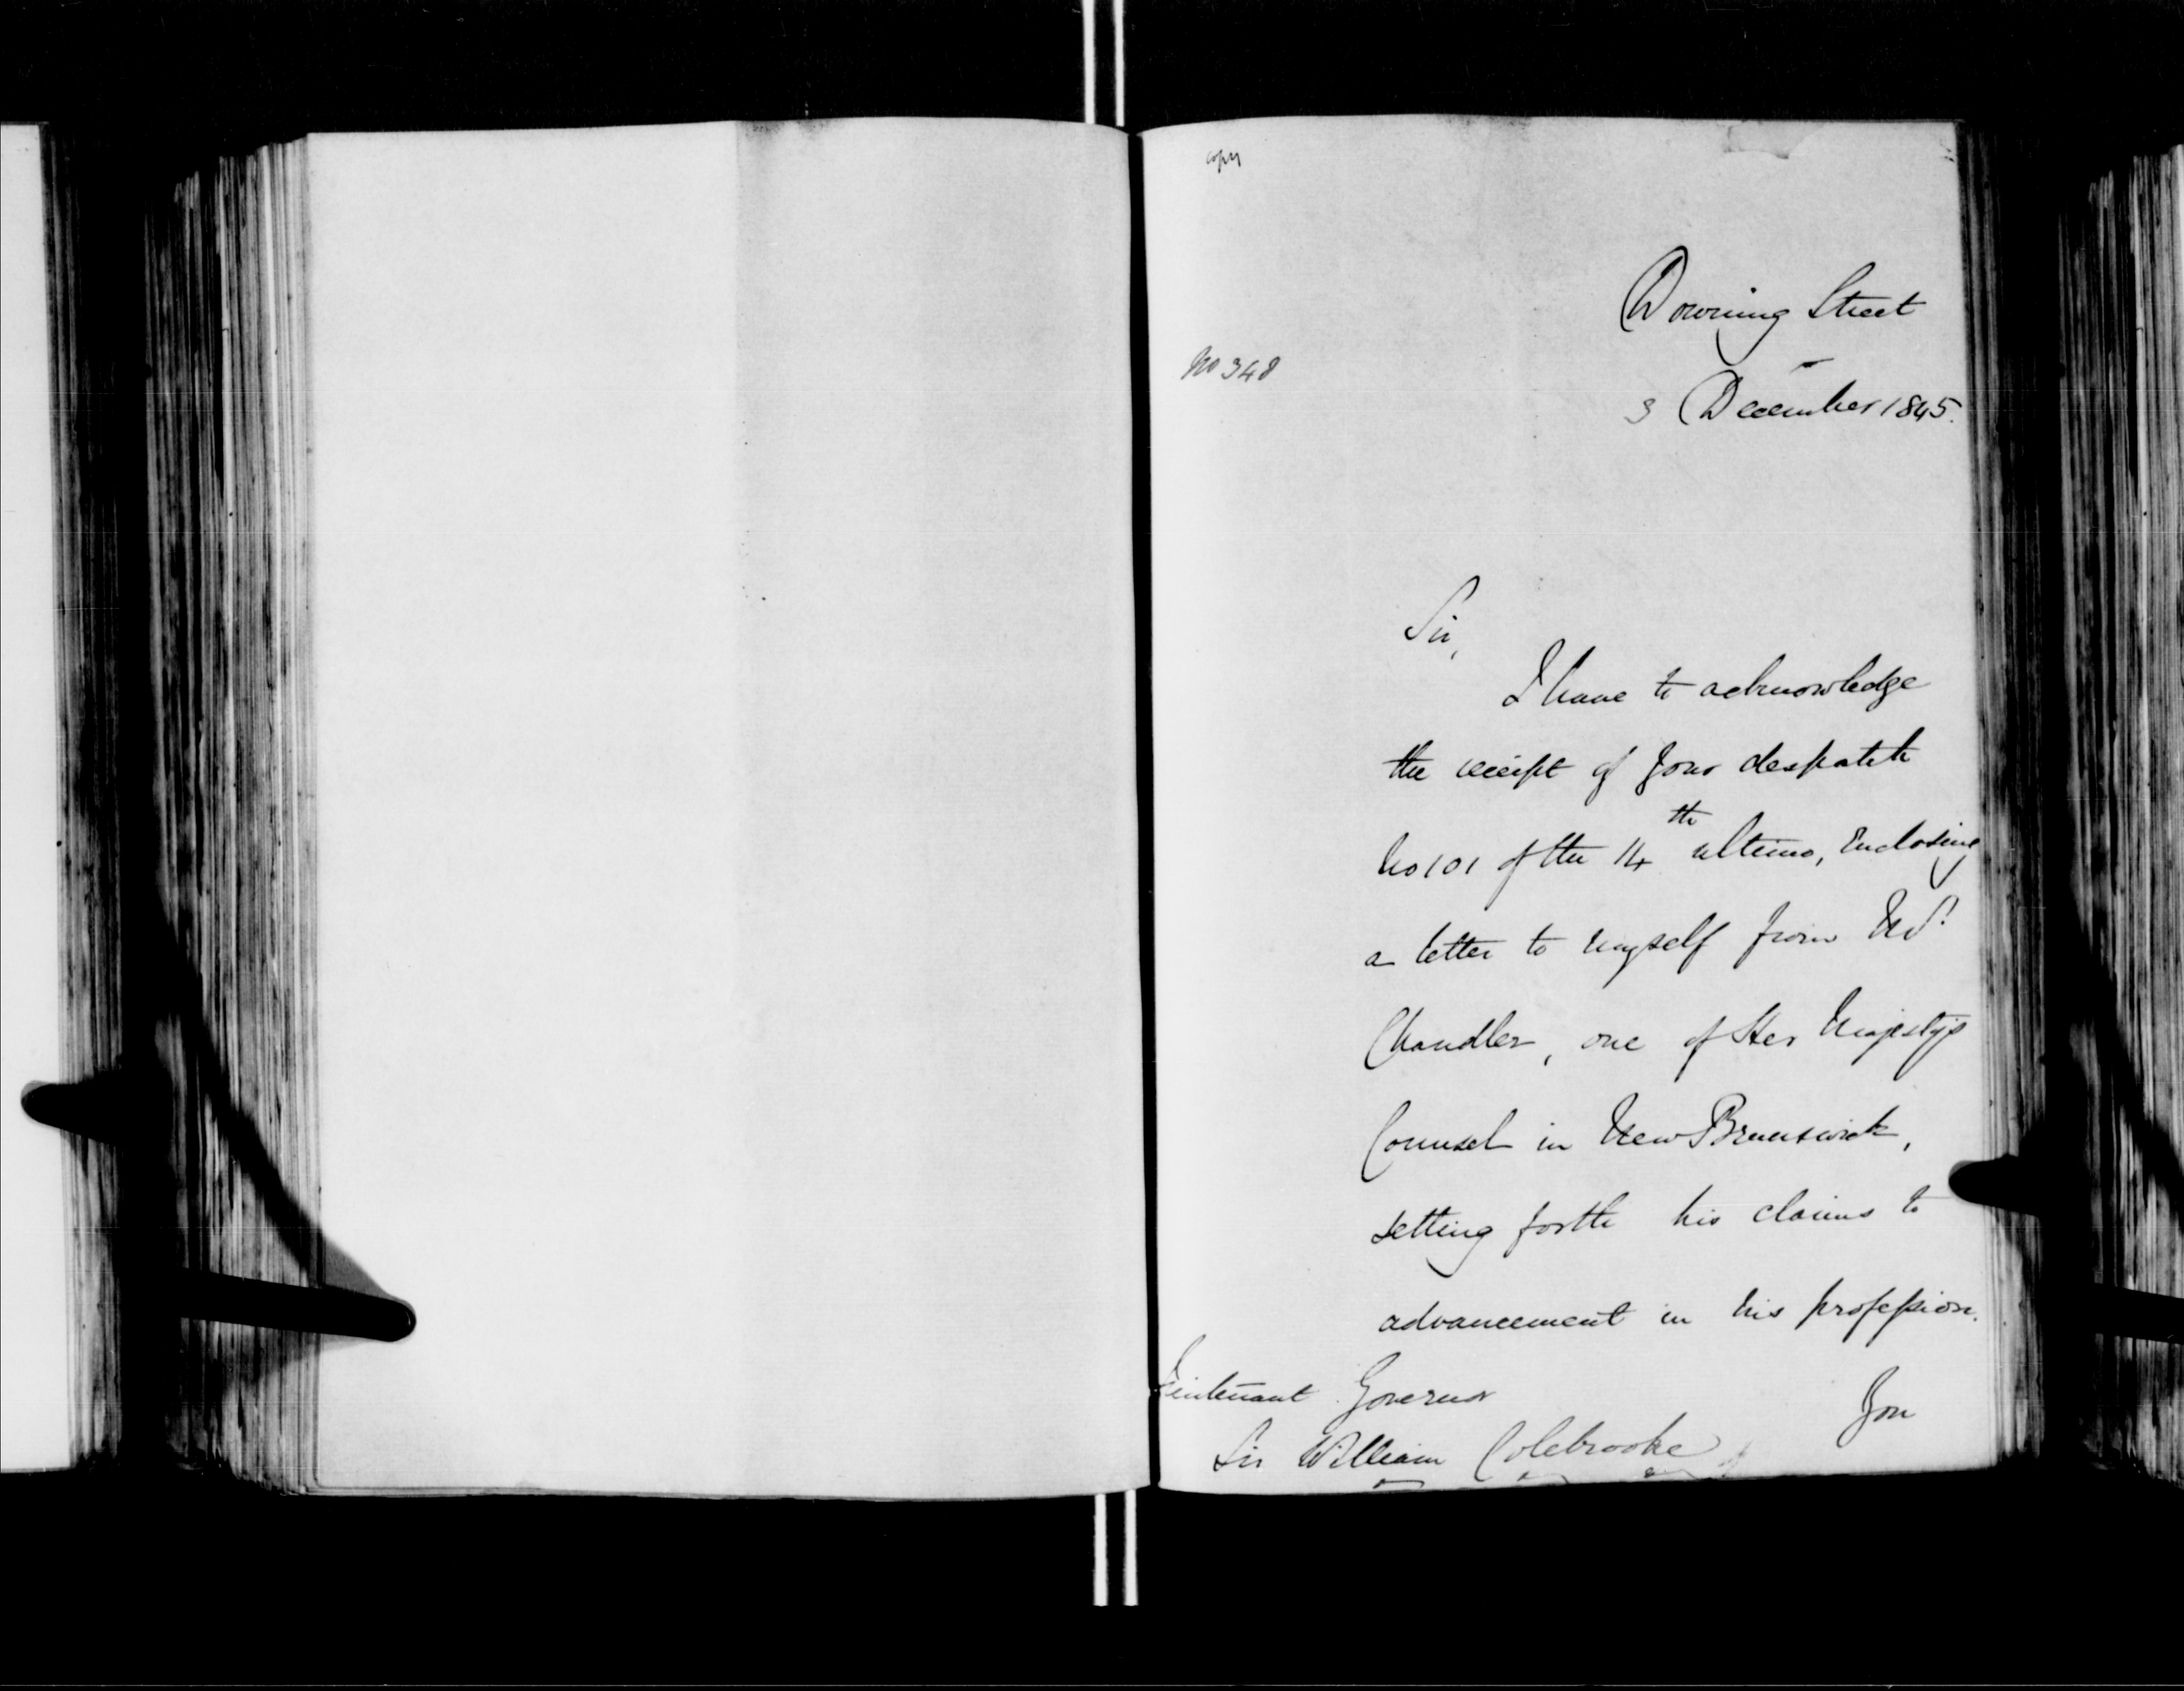 copy
Downing Street
No 348
3 December 1845.
Sir,
I have to acknowledge
the receipt of your despatch
No 101 of the 14th ultimo, enclosing
a letter to myself from Mr.
Chandler, one of Her Majesty's
Counsel in New Brunswick,
setting forth his claims to
advancement in his profession.
You
Lieutenant Governor
Sir William Colebrooke